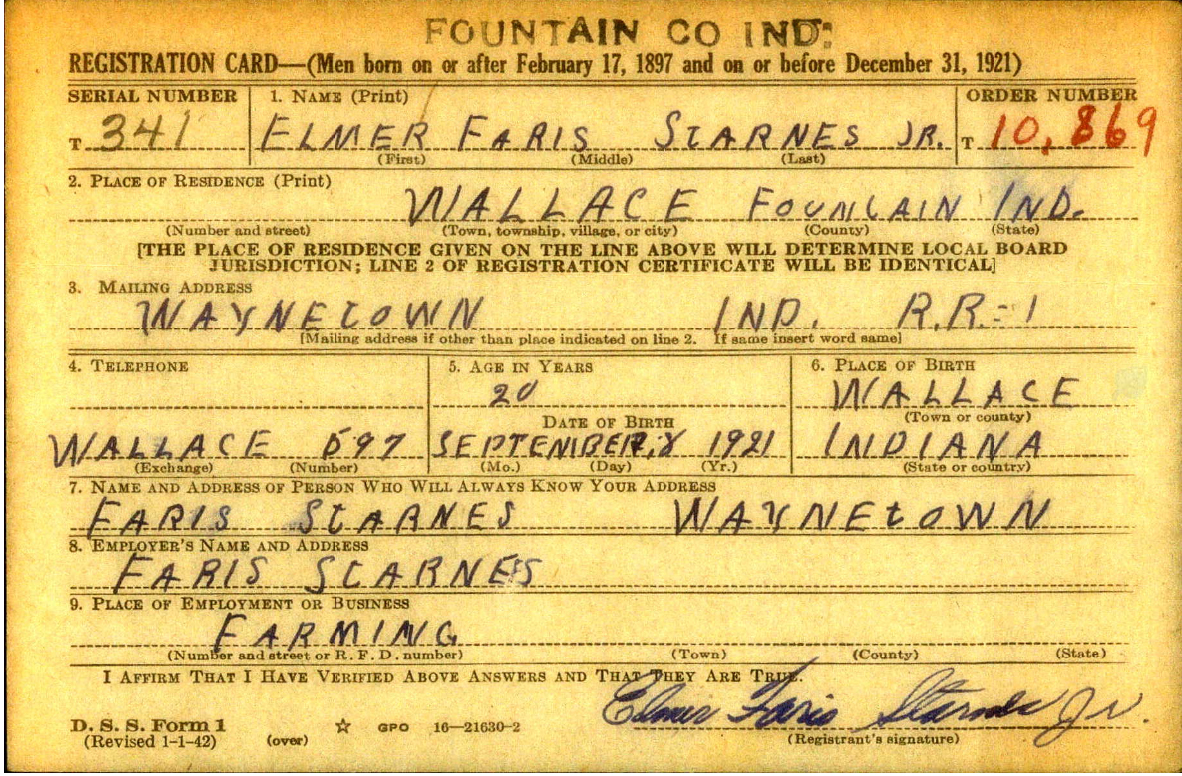 FOUNTAIN CO IND.
REGISTRATION CARD—(Men born on or after February 17, 1897 and on or before December 31, 1921)
SERIAL NUMBER 1. NAME (Print) ORDER NUMBER
T 341 ELMER FARIS STARNES JR. T 10,869
(First) (Middle) (Last)
2. PLACE OF RESIDENCE (Print)
WALLACE FOUNTAIN IND.
(Number and street) (Town, township, village, or city) (County) (State)
[THE PLACE OF RESIDENCE GIVEN ON THE LINE ABOVE WILL DETERMINE LOCAL BOARD
JURISDICTION; LINE 2 OF REGISTRATION CERTIFICATE WILL BE IDENTICAL]
3. MAILING ADDRESS
WAYNETOWN IND. R.R.-1
[Mailing address if other than place indicated on line 2. If same insert word same]
4. TELEPHONE 5. AGE IN YEARS 6. PLACE OF BIRTH
20 WALLACE
DATE OF BIRTH (Town or county)
WALLACE 597 SEPTEMBER, 8 1921 INDIANA
(Exchange) (Number) (Mo.) (Day) (Yr.) (State or country)
7. NAME AND ADDRESS OF PERSON WHO WILL ALWAYS KNOW YOUR ADDRESS
FARIS STARNES WAYNETOWN
8. EMPLOYER'S NAME AND ADDRESS
FARIS STARNES
9. PLACE OF EMPLOYMENT OR BUSINESS
FARMING
(Number and street or R. F. D. number) (Town) (County) (State)
I AFFIRM THAT I HAVE VERIFIED ABOVE ANSWERS AND THAT THEY ARE TRUE.
Elmer Faris Starnes Jr.
D. S. S. Form 1
(Revised 1-1-42) (over) ☆ GPO 16—21630-2 (Registrant's signature)